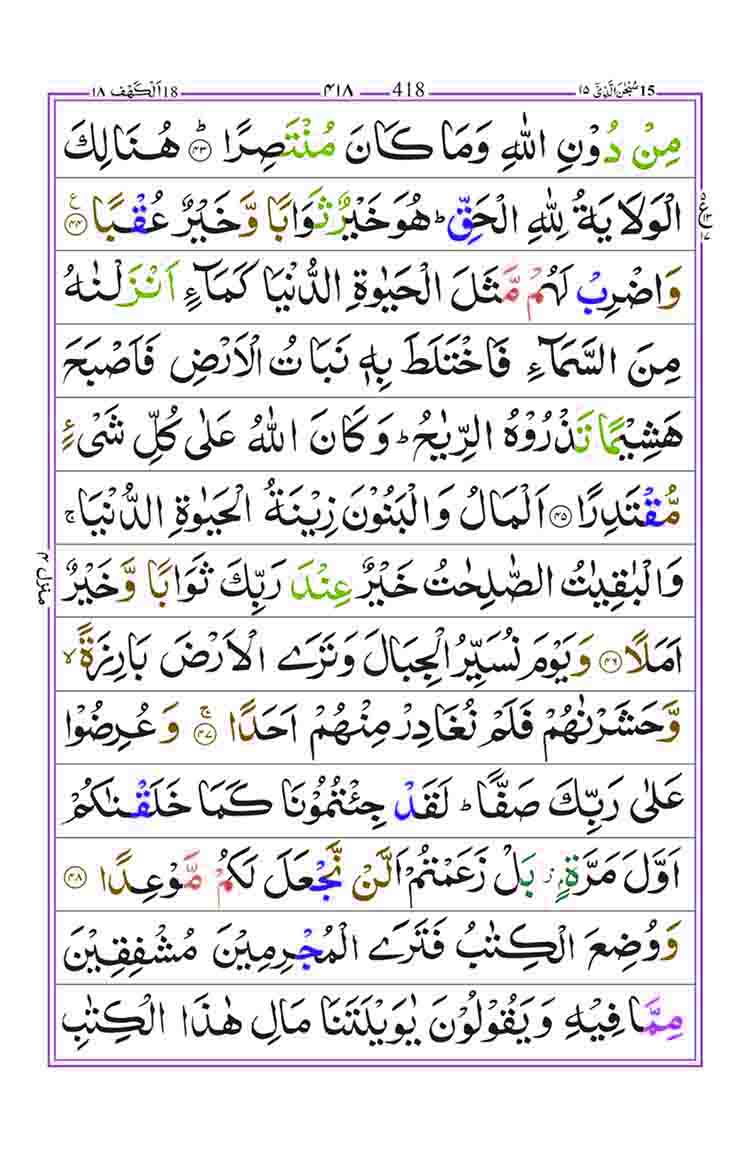 15 سُبْحٰنَ الَّذِیْٓ ۱۵ 418 ۴۱۸ 18 اَلْكَهْف ۱۸
مِنْ دُوْنِ اللّٰهِ وَمَا كَانَ مُنْتَصِرًا ؕ﴿۴۳﴾ هُنَالِكَ
الْوَلَايَةُ لِلّٰهِ الْحَقِّ ؕ هُوَ خَيْرٌ ثَوَابًا وَّخَيْرٌ عُقْبًا ﴿۴۴﴾ ع
وَاضْرِبْ لَهُمْ مَّثَلَ الْحَيٰوةِ الدُّنْيَا كَمَآءٍ اَنْزَلْنٰهُ
مِنَ السَّمَآءِ فَاخْتَلَطَ بِهٖ نَبَاتُ الْاَرْضِ فَاَصْبَحَ
هَشِيْمًا تَذْرُوْهُ الرِّيٰحُ ؕ وَكَانَ اللّٰهُ عَلٰى كُلِّ شَىْءٍ
مُّقْتَدِرًا ﴿۴۵﴾ اَلْمَالُ وَالْبَنُوْنَ زِيْنَةُ الْحَيٰوةِ الدُّنْيَا ۚ
وَالْبٰقِيٰتُ الصّٰلِحٰتُ خَيْرٌ عِنْدَ رَبِّكَ ثَوَابًا وَّخَيْرٌ
منزل ۴
اَمَلًا ﴿۴۶﴾ وَيَوْمَ نُسَيِّرُ الْجِبَالَ وَتَرَى الْاَرْضَ بَارِزَةً ۙ
وَّحَشَرْنٰهُمْ فَلَمْ نُغَادِرْ مِنْهُمْ اَحَدًا ۚ﴿۴۷﴾ وَعُرِضُوْا
عَلٰى رَبِّكَ صَفًّا ؕ لَقَدْ جِئْتُمُوْنَا كَمَا خَلَقْنٰكُمْ
اَوَّلَ مَرَّةٍۭ ز بَلْ زَعَمْتُمْ اَلَّنْ نَّجْعَلَ لَكُمْ مَّوْعِدًا ﴿۴۸﴾
وَوُضِعَ الْكِتٰبُ فَتَرَى الْمُجْرِمِيْنَ مُشْفِقِيْنَ
مِمَّا فِيْهِ وَيَقُوْلُوْنَ يٰوَيْلَتَنَا مَالِ هٰذَا الْكِتٰبِ